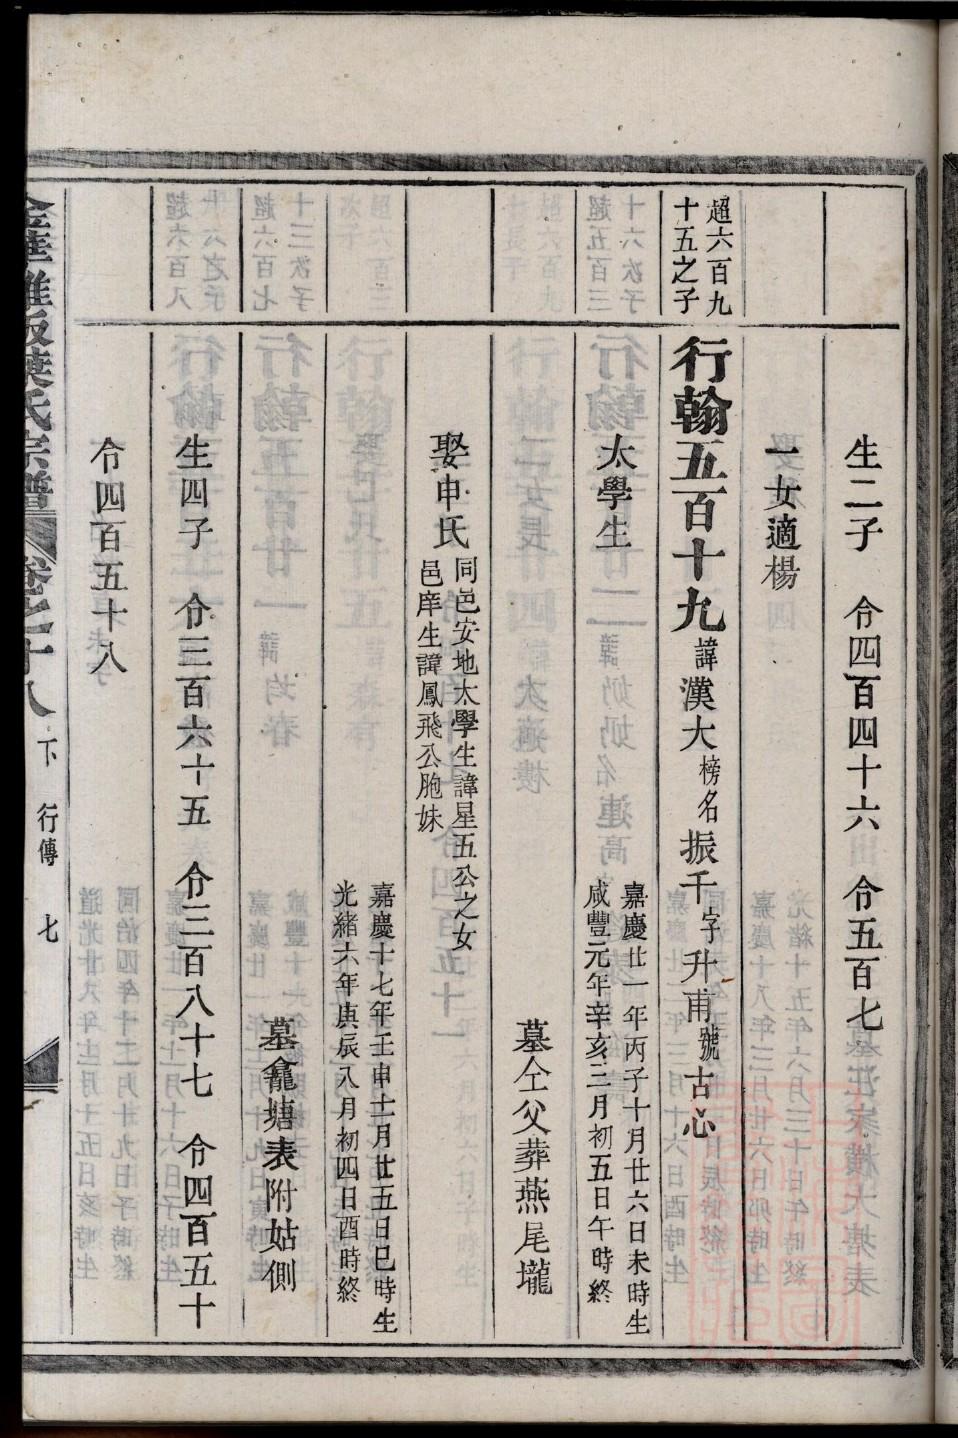 生二子 令四百四十六 令五百七
一女適楊
超六百九
十五之子
行翰五百十九諱漢大榜名振千字升甫號古心
太學生
嘉慶廿一年丙子十月廿六日未時生
咸豐元年辛亥二月初五日午時終
墓仝父葬燕尾壠
娶申氏
同邑安地太學生諱星五公之女
邑庠生諱鳳飛公胞妹
嘉慶十七年壬申十二月廿五日巳時生
光緒六年庚辰八月初四日酉時終
墓龕塘表附姑側
生四子 令三百六十五 令三百八十七 令四百五十
令四百五十八
金華雅畈葉氏宗譜 卷之十八 下 行傳 七